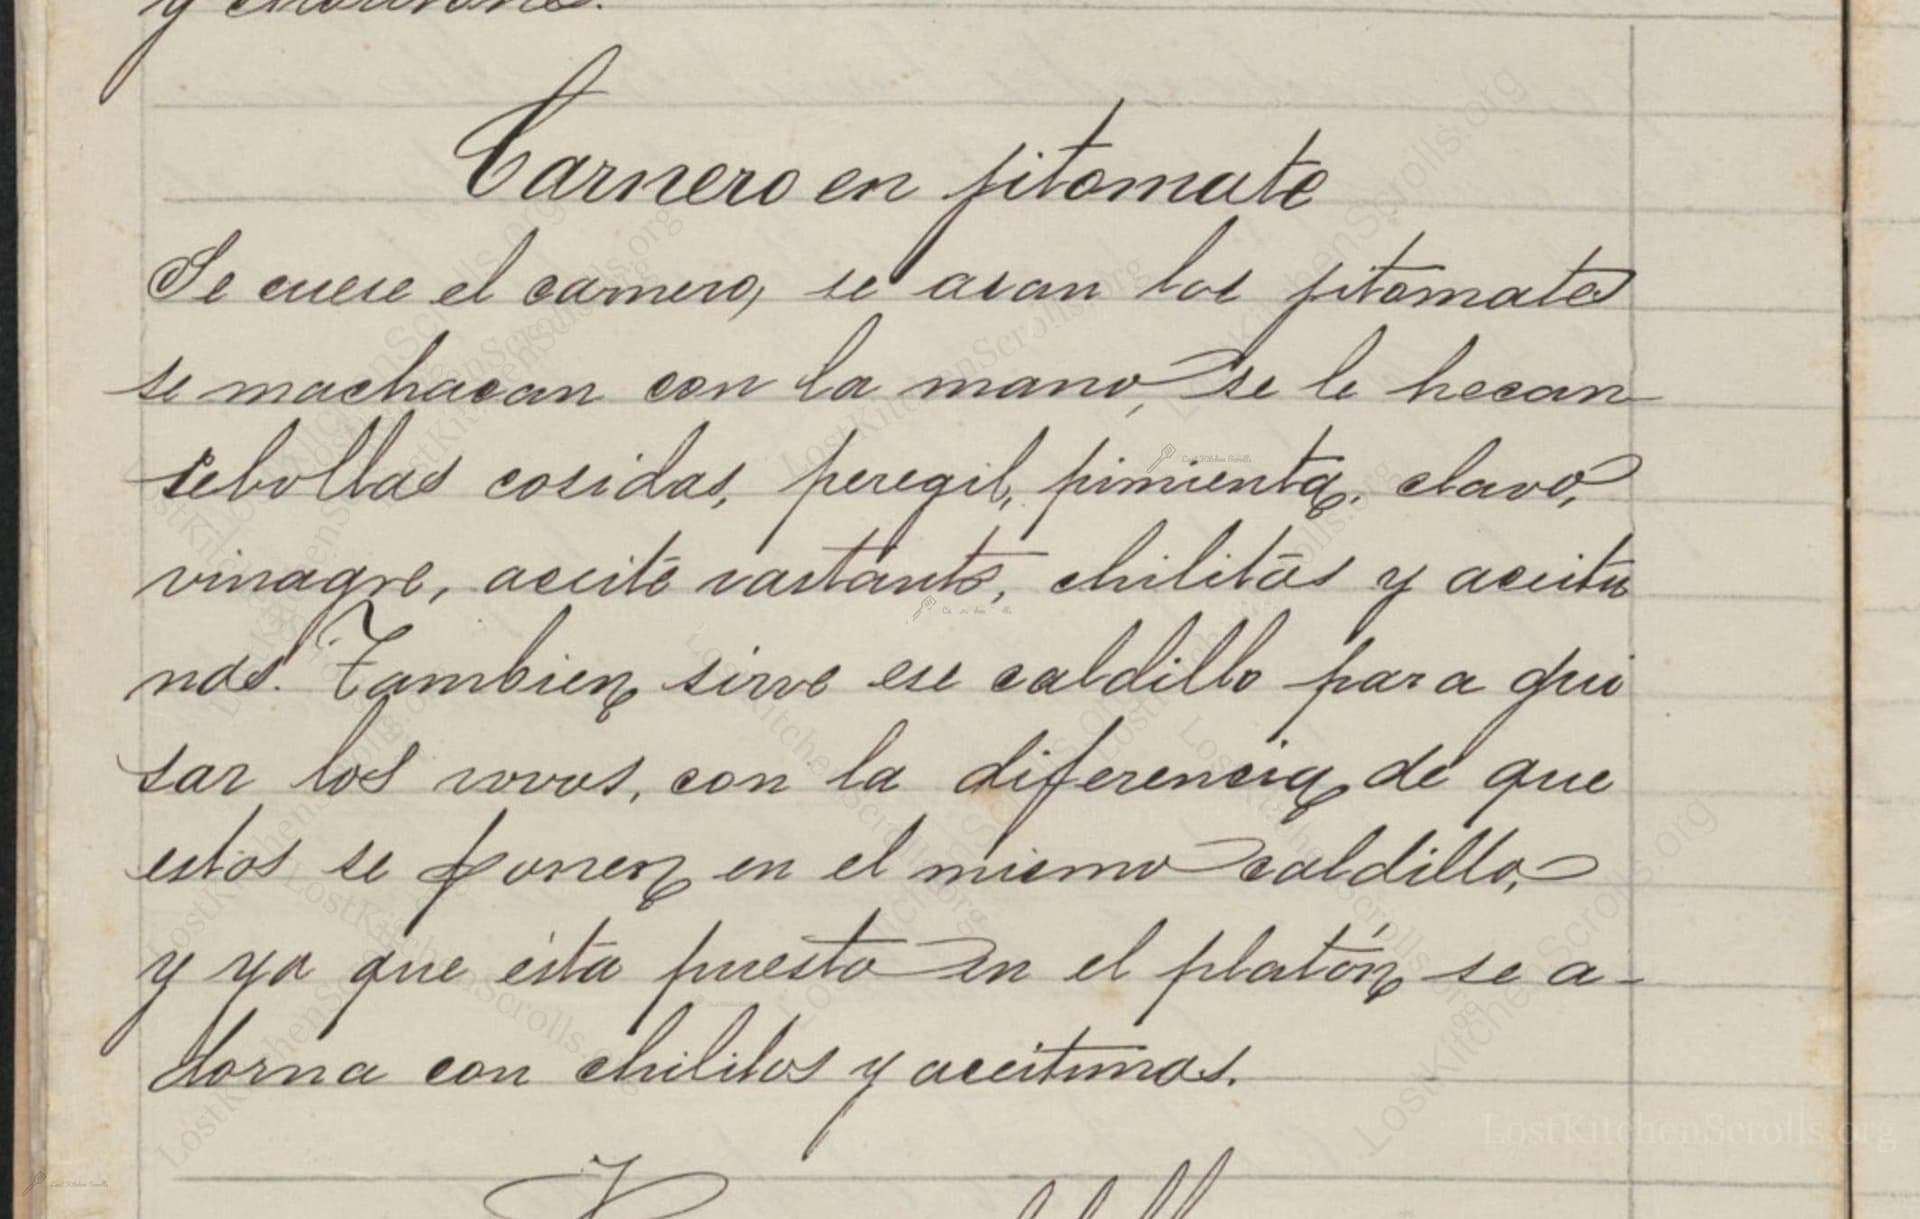 y
Carnero en jitomate
Se cuese el carnero, se asan los jitomates
se machacan con la mano, se le hecan
sebollas cosidas, peregil, pimienta, clavo,
vinagre, aceite vastante, chilitos y aceitu
nas. Tambien sirve ese caldillo para gui
sar los vovos, con la diferencia de que
estos se ponen en el mismo caldillo,
y ya que ésta puesto en el platón se a-
dorna con chilitos y aceitunas.
LostKitchenScrolls.org